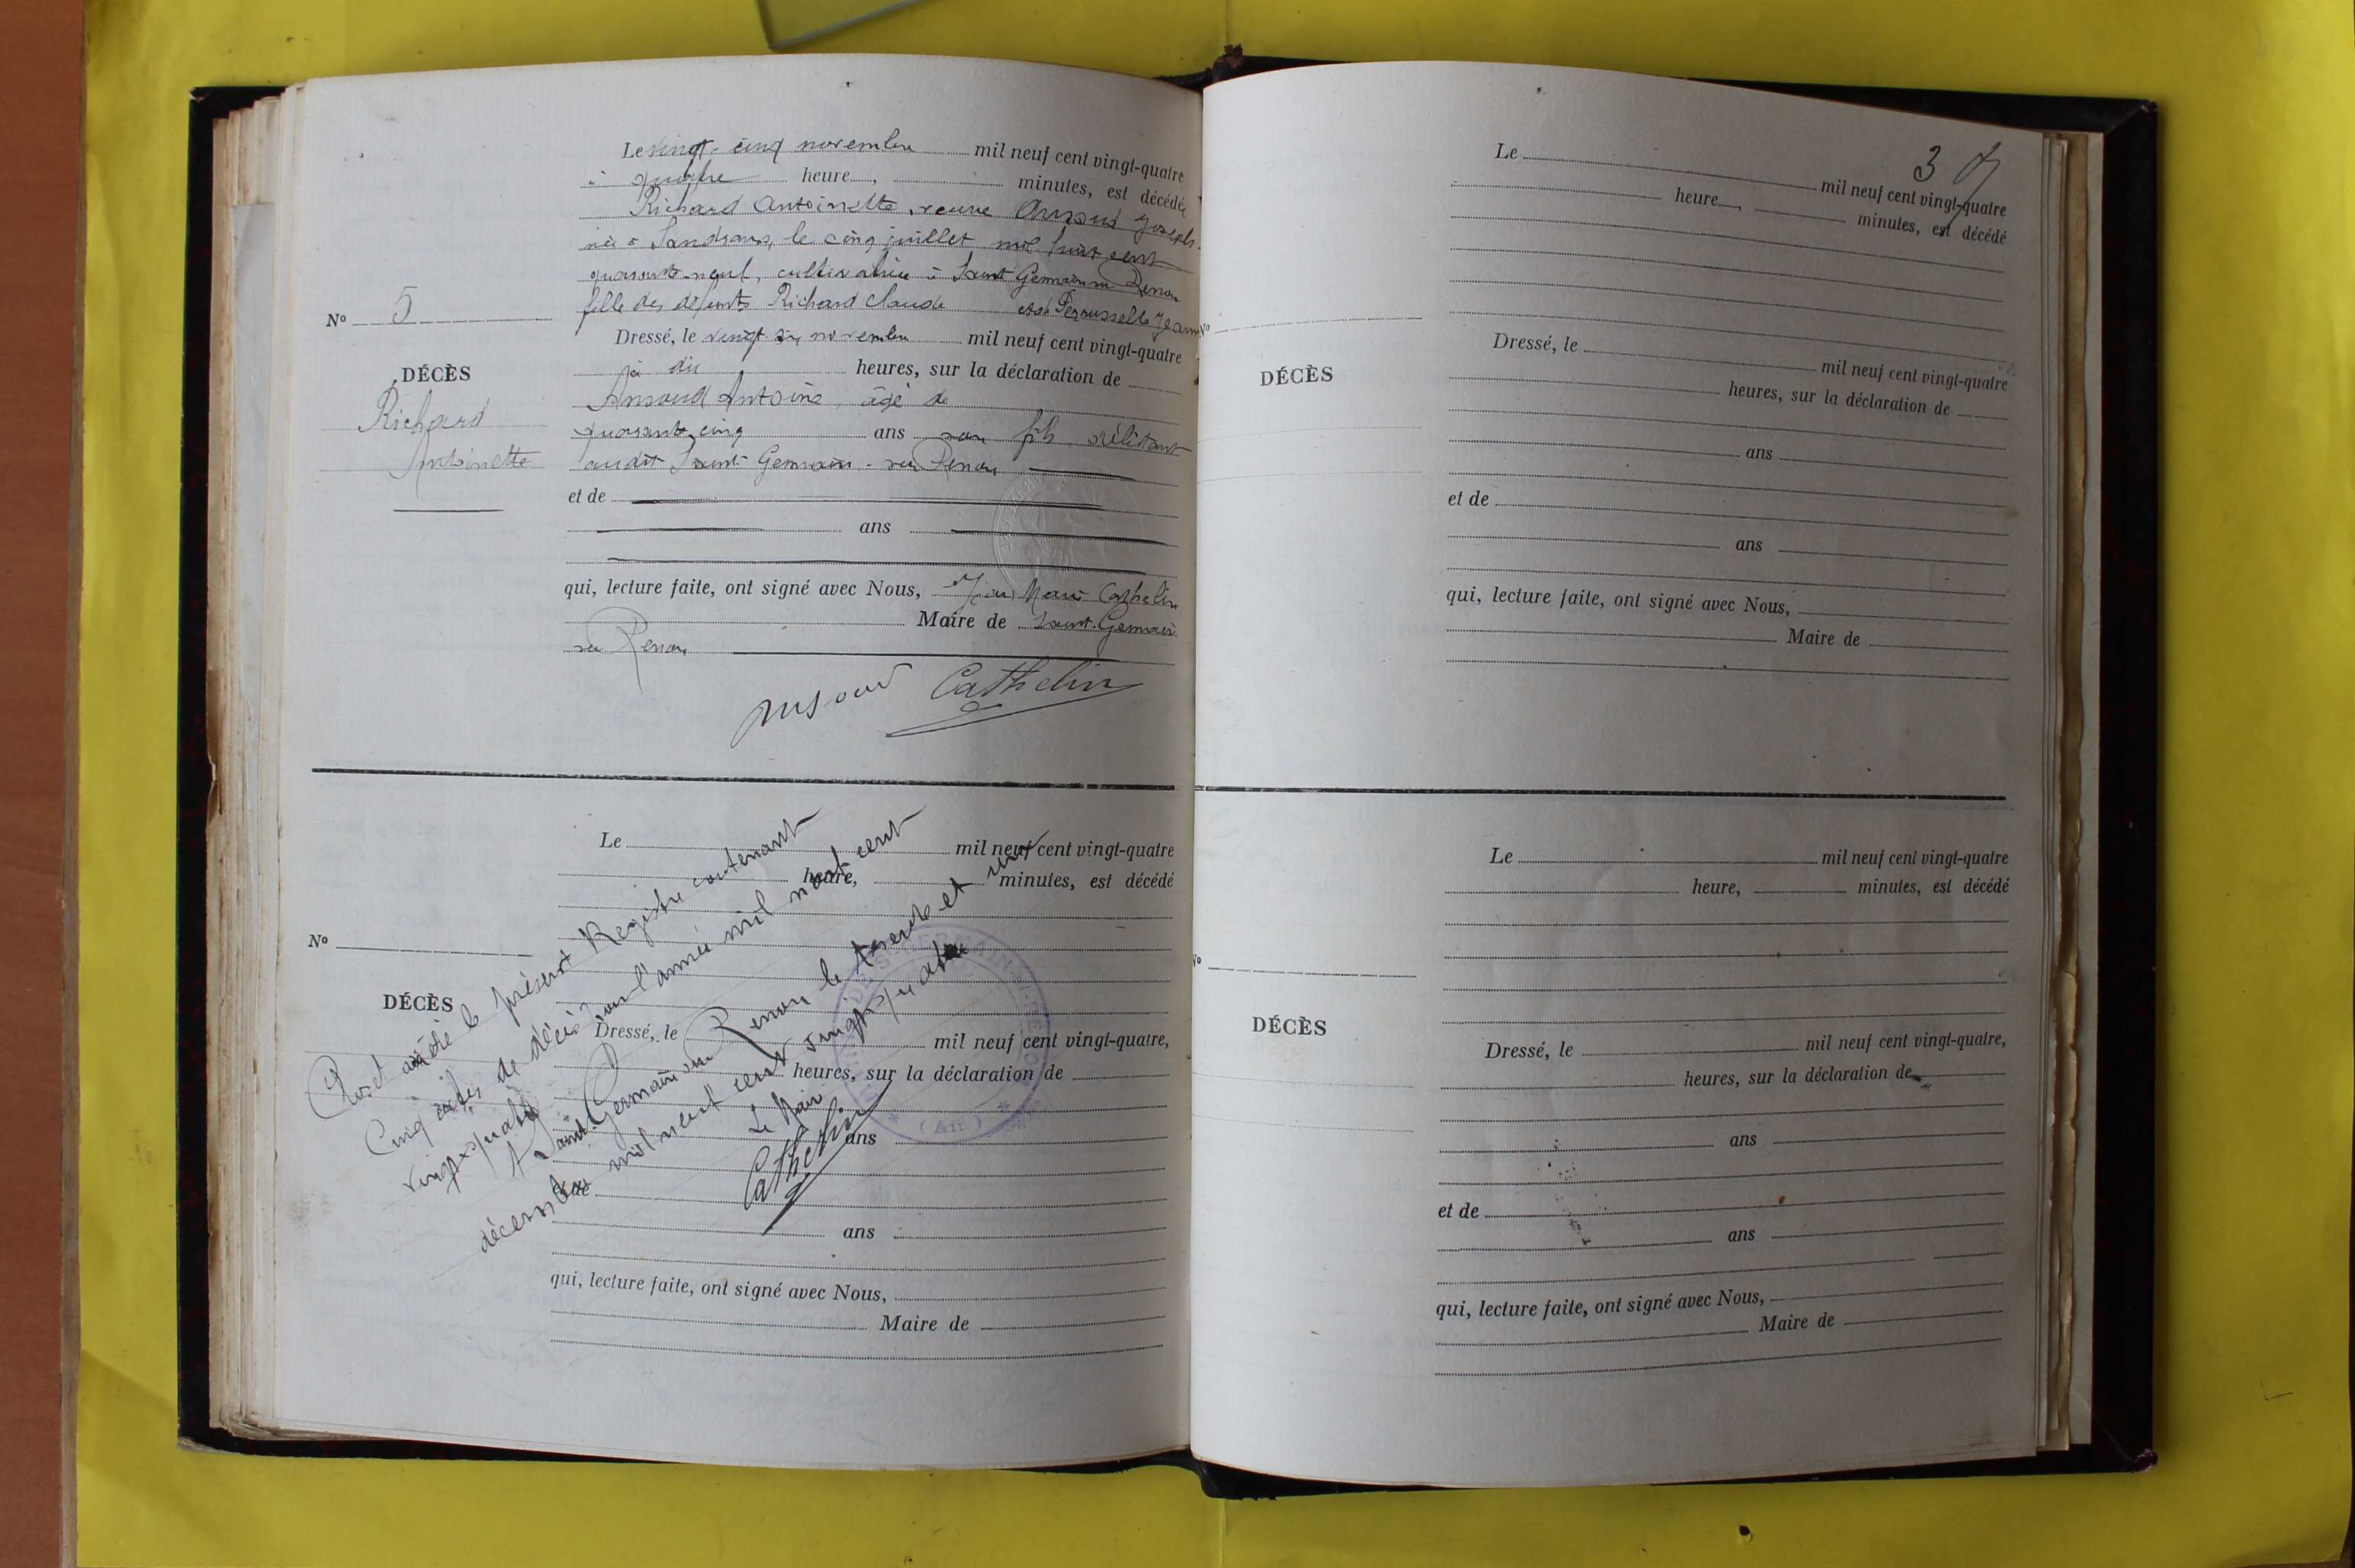 Le vingt-cinq novembre mil neuf cent vingt-quatre
à quatre heure, minutes, est décédée
Richard Antoinette, veuve Joseph
née à Sandrans, le cinq juillet mil huit cent
quarante-neuf, cultivatrice à Saint Germain sur Renon
fille des défunts Richard Claude et de Perousselle Jeanne
Nº 5
Dressé, le vingt six novembre mil neuf cent vingt-quatre
DÉCÈS
à dix heures, sur la déclaration de
Antoine, âgé de
Richard
quarante cinq ans son fils, résidant
Antoinette
audit Saint Germain-sur Renon
et de
ans
qui, lecture faite, ont signé avec Nous, Jean Marie Cathelin
Maire de Saint-Germain
sur Renon
Cathelin
Le mil neuf cent vingt-quatre
heure, minutes, est décédé
Nº
DÉCÈS
Dressé, le mil neuf cent vingt-quatre,
heures, sur la déclaration de
ans
et de
ans
qui, lecture faite, ont signé avec Nous,
Maire de
Clos et arrêté le présent Registre contenant
Cinq actes de décès pour l'année mil neuf cent
vingt-quatre
A Saint-Germain sur Renon le trente et un
décembre mil neuf cent vingt quatre
Le Maire
Cathelin
(Ain)
3
Le mil neuf cent vingt-quatre
heure, minutes, est décédé
Nº
Dressé, le mil neuf cent vingt-quatre
DÉCÈS
heures, sur la déclaration de
ans
et de
ans
qui, lecture faite, ont signé avec Nous,
Maire de
Le mil neuf cent vingt-quatre
heure, minutes, est décédé
Nº
DÉCÈS
Dressé, le mil neuf cent vingt-quatre,
heures, sur la déclaration de
ans
et de
ans
qui, lecture faite, ont signé avec Nous,
Maire de